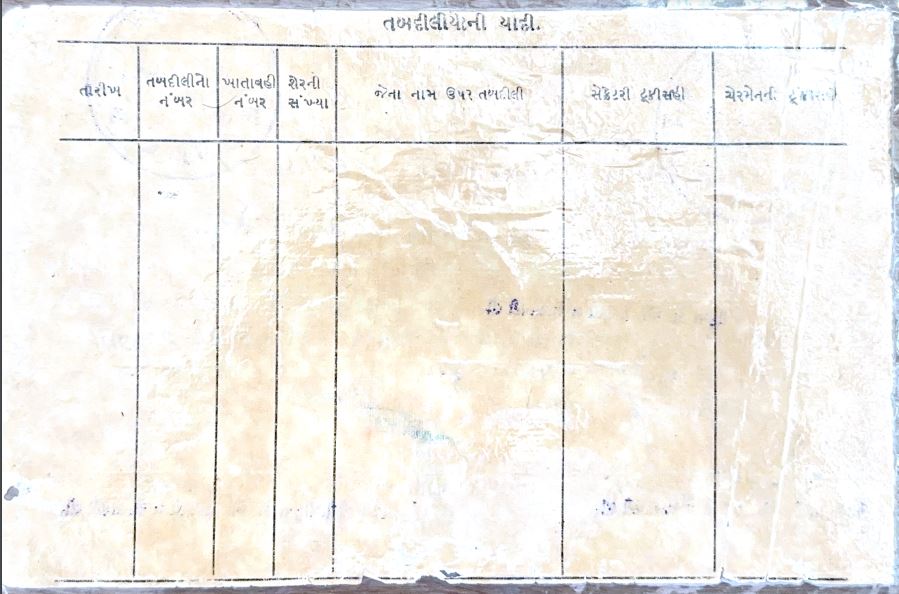 તબદીલીયોની યાદી.
તારીખ
તબદીલીનો
નંબર
ખાતાવહી
નંબર
શેરની
સંખ્યા
જેના નામ ઉપર તબદીલી
સેક્રેટરી ટૂંકીસહી
ચેરમેનની ટૂંકીસહી